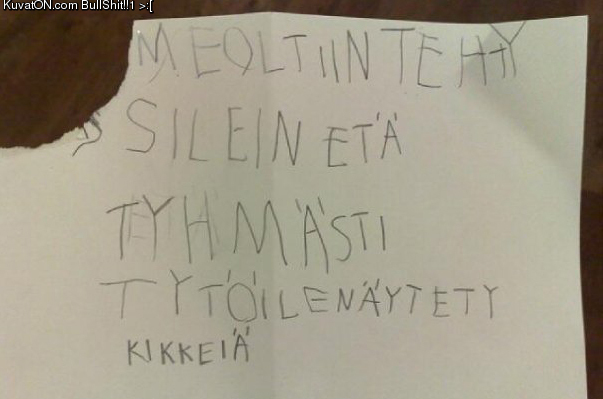 KuvatON.com BullShit!!1 >:[
MEOLTIIN TEHTY
SILEIN ETÄ
TYHMÄSTI
TYTÖILENÄYTETY
KIKKEIÄ